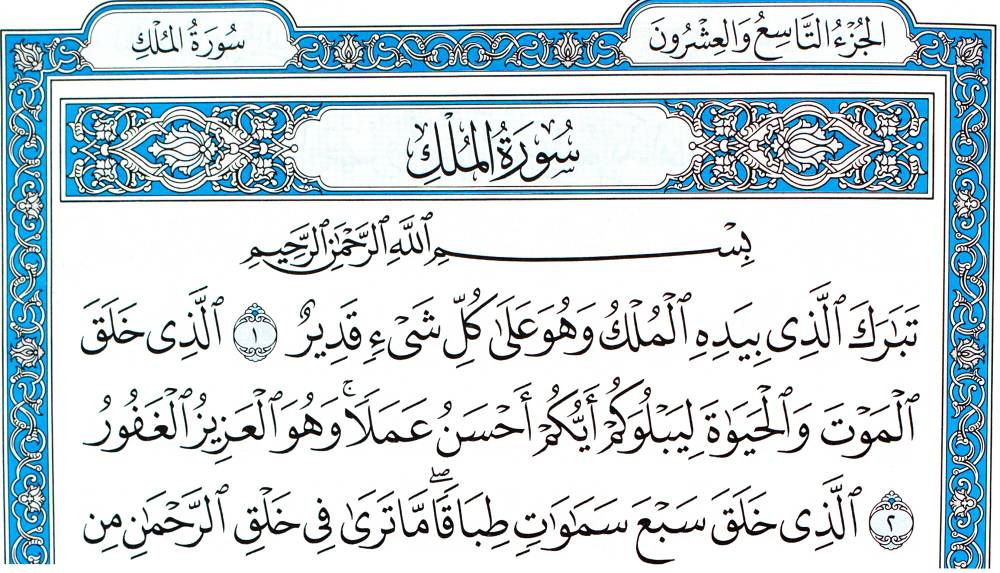 الجُزْءُ التَّاسِعُ وَالعِشْرُونَ
سُورَةُ المُلْكِ
سُورَةُ المُلْكِ
بِسْمِ ٱللَّهِ ٱلرَّحْمَٰنِ ٱلرَّحِيمِ
تَبَٰرَكَ ٱلَّذِى بِيَدِهِ ٱلْمُلْكُ وَهُوَ عَلَىٰ كُلِّ شَىْءٍ قَدِيرٌ ١ ٱلَّذِى خَلَقَ
ٱلْمَوْتَ وَٱلْحَيَوٰةَ لِيَبْلُوَكُمْ أَيُّكُمْ أَحْسَنُ عَمَلًا ۚ وَهُوَ ٱلْعَزِيزُ ٱلْغَفُورُ
٢ ٱلَّذِى خَلَقَ سَبْعَ سَمَٰوَٰتٍ طِبَاقًا ۖ مَّا تَرَىٰ فِى خَلْقِ ٱلرَّحْمَٰنِ مِن